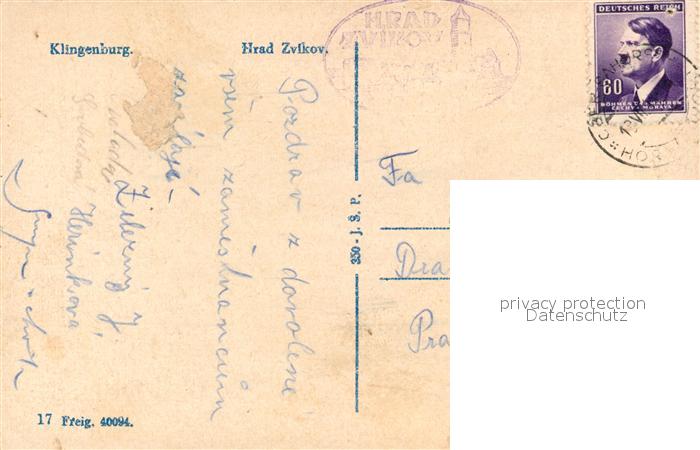 Klingenburg. Hrad Zvíkov.
HRAD
ZVÍKOV
DEUTSCHES REICH
60
BÖHMEN U. MÄHREN
ČECHY A MORAVA
Pozdrav z dovolené
všem zaměstnancům
zasílají
Železný J.
Herinková
350 - J. S. P.
Fa
Dra
Pra
privacy protection
Datenschutz
17 Freig. 40094.